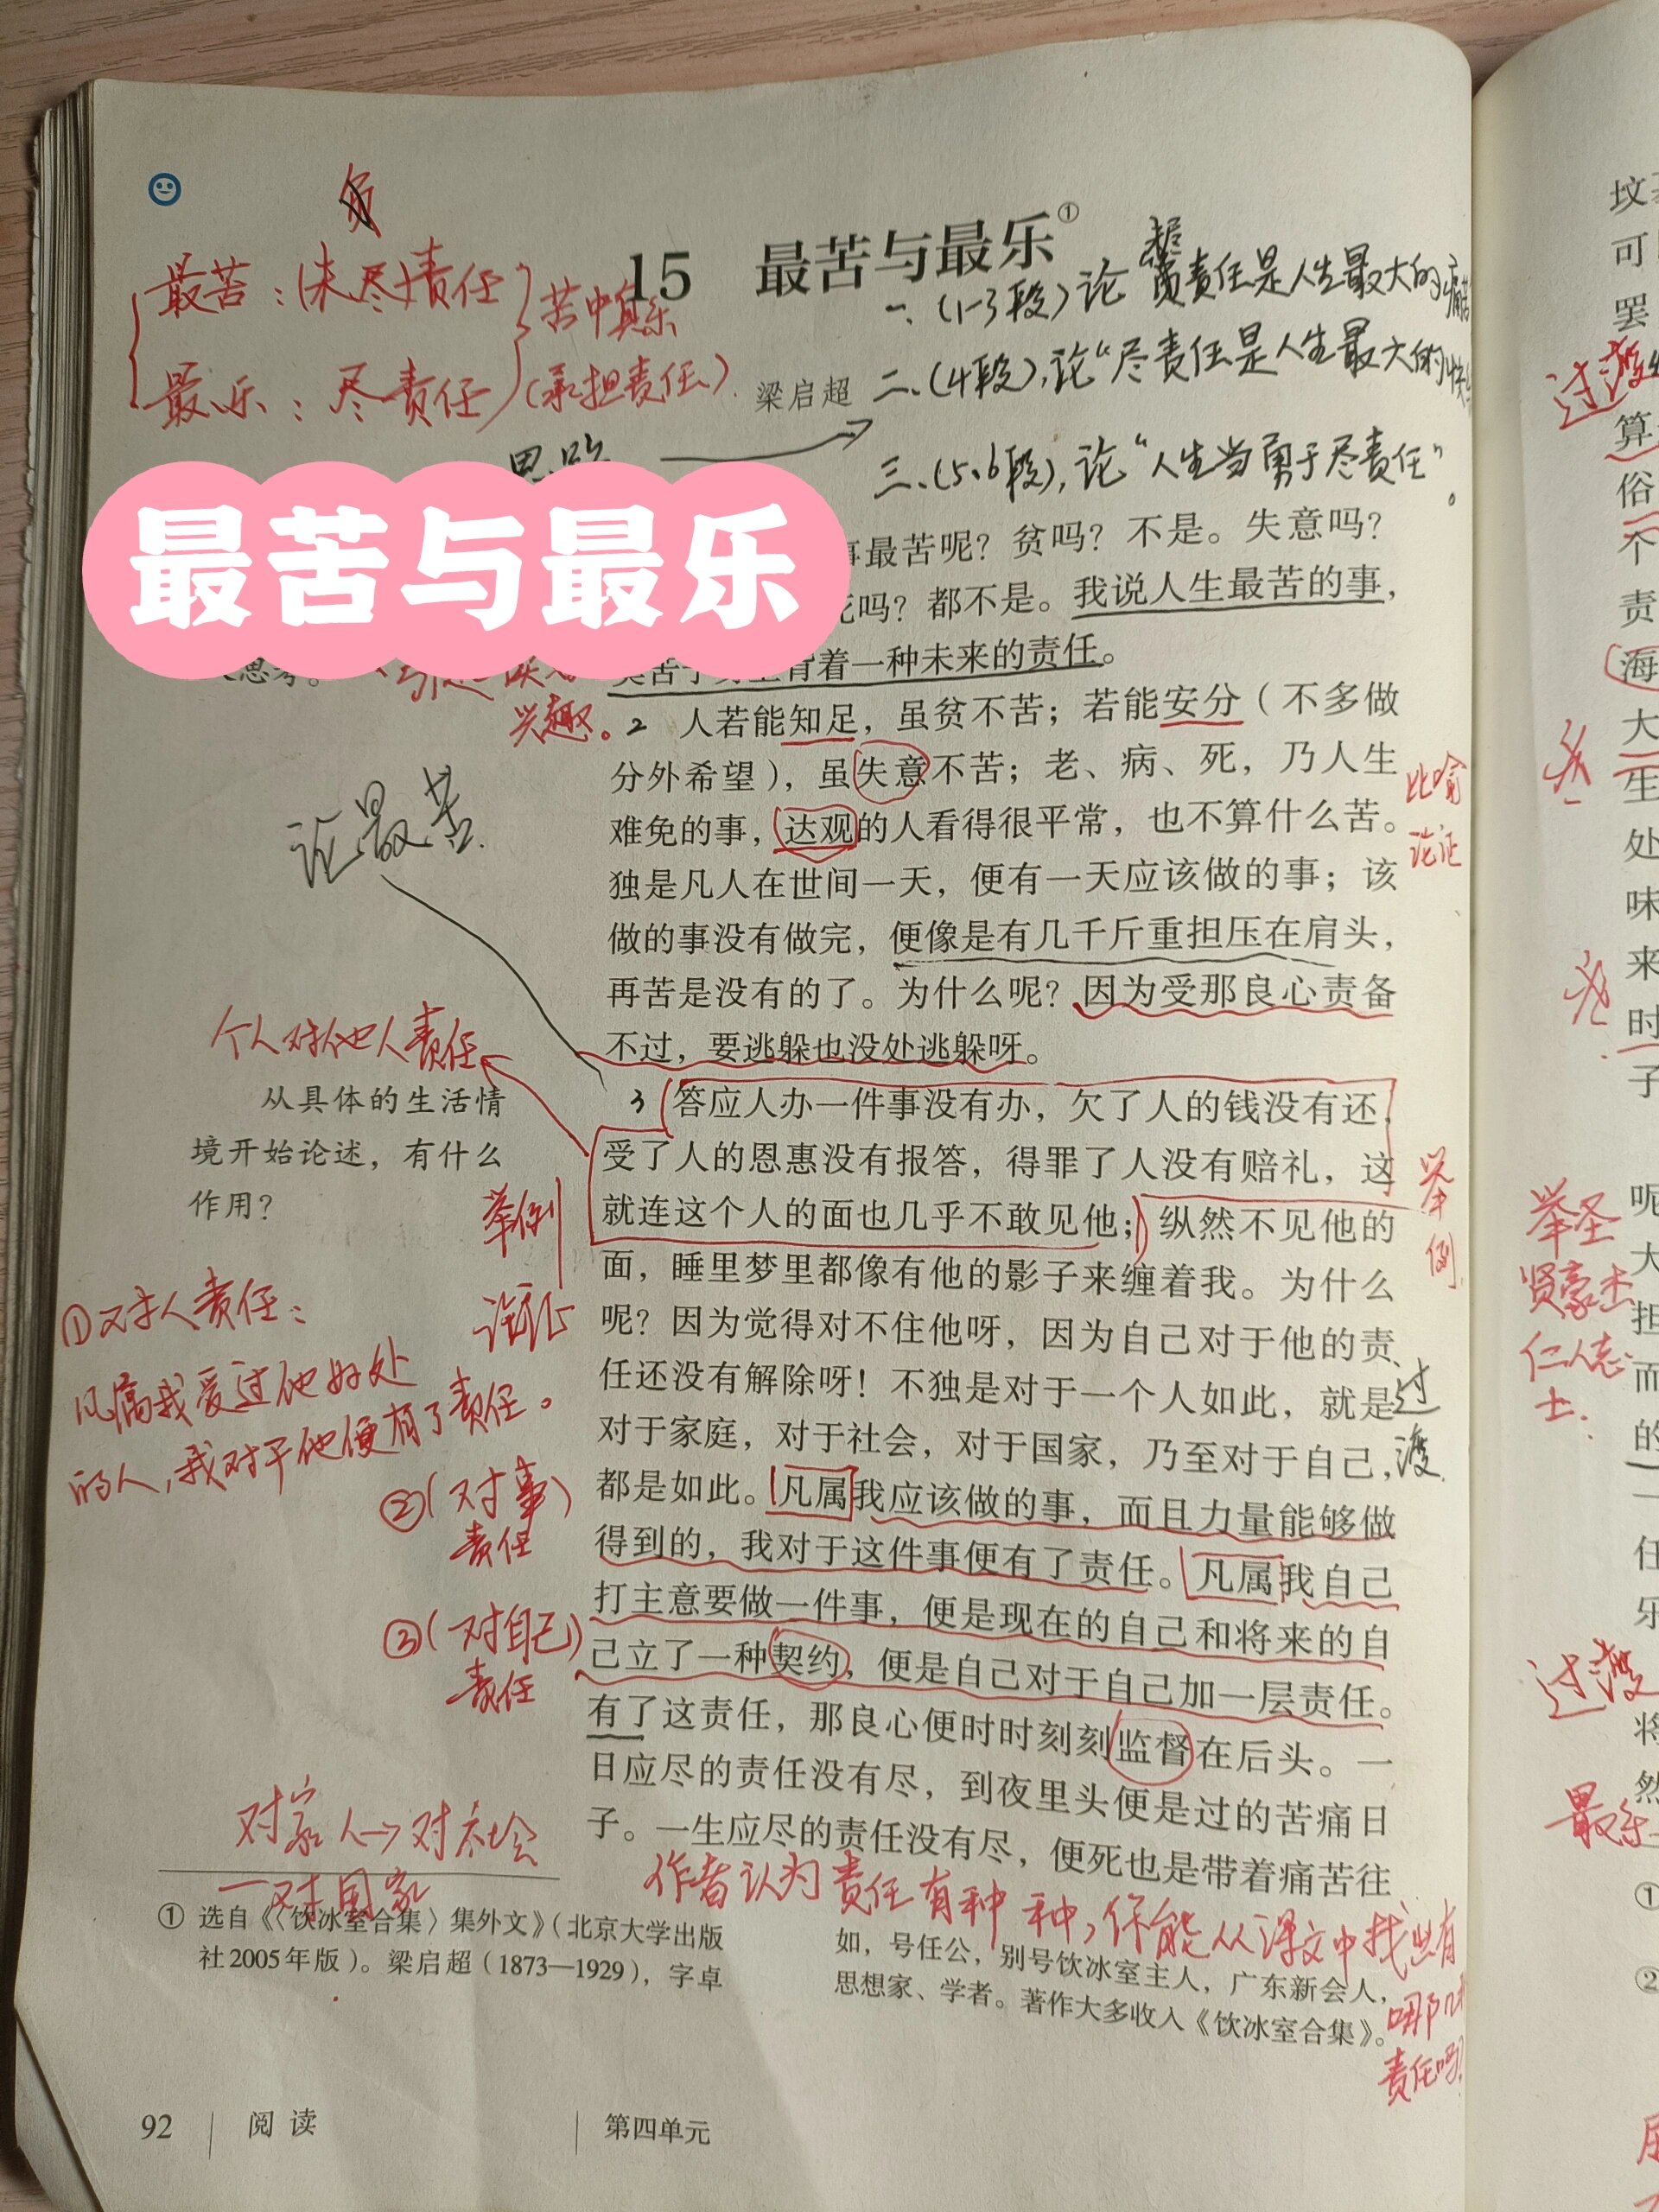 15 最苦与最乐①
负
最苦：（未尽）责任
苦中真乐
最乐：尽责任
（承担责任）.
梁启超
一、(1-3段)论 负责任是人生最大的痛苦
二、(4段),论“尽责任是人生最大的快
三、(5、6段),论“人生当勇于尽责任”。
思路
最苦与最乐
事最苦呢？贫吗？不是。失意吗？
死吗？都不是。我说人生最苦的事，
莫苦于身上背着一种未来的责任。
思考。
兴趣。
2 人若能知足，虽贫不苦；若能安分（不多做
分外希望），虽失意不苦；老、病、死，乃人生
难免的事，达观的人看得很平常，也不算什么苦。
独是凡人在世间一天，便有一天应该做的事；该
做的事没有做完，便像是有几千斤重担压在肩头，
再苦是没有的了。为什么呢？因为受那良心责备
不过，要逃躲也没处逃躲呀。
比喻
论证
论最苦.
个人对他人责任
从具体的生活情
境开始论述，有什么
作用？
3 答应人办一件事没有办，欠了人的钱没有还，
受了人的恩惠没有报答，得罪了人没有赔礼，这
就连这个人的面也几乎不敢见他；纵然不见他的
面，睡里梦里都像有他的影子来缠着我。为什么
呢？因为觉得对不住他呀，因为自己对于他的责
任还没有解除呀！不独是对于一个人如此，就是
对于家庭，对于社会，对于国家，乃至对于自己，
都是如此。凡属我应该做的事，而且力量能够做
得到的，我对于这件事便有了责任。凡属我自己
打主意要做一件事，便是现在的自己和将来的自
己立了一种契约，便是自己对于自己加一层责任。
有了这责任，那良心便时时刻刻监督在后头。一
日应尽的责任没有尽，到夜里头便是过的苦痛日
子。一生应尽的责任没有尽，便死也是带着痛苦往
举例
论证
举例
过渡
①对人责任：
凡属我受过他好处
的人,我对于他便有了责任。
②(对事)
责任
③(对自己)
责任
对家人→对社会
→对国家
作者认为责任有种种,你能从课文中找出有
哪几种
责任吗?
① 选自《〈饮冰室合集〉集外文》（北京大学出版
社2005年版）。梁启超（1873—1929），字卓
如，号任公，别号饮冰室主人，广东新会人，
思想家、学者。著作大多收入《饮冰室合集》。
92 阅读 第四单元
坟
可
罢
过渡
算
俗
个
责
海
大
生
处
味
来
时
子
举圣
贤豪杰
仁人志
士.
呢
大
担
而
的
一
任
乐
过渡
将
然
最乐
①
②